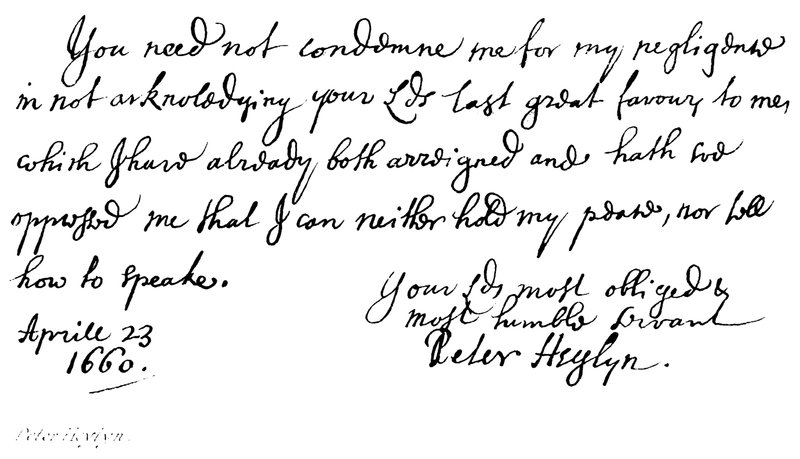 You need not condemne me for my negligence
in not acknoledging your Lds last great favour to me,
which I have already both arreigned and hath soe
oppressed me that I can neither hold my peace, nor tell
how to speake.
Your Lds most obliged &
most humble servant
Peter Heylyn.
Aprile 23
1660.
Peter Heylyn.